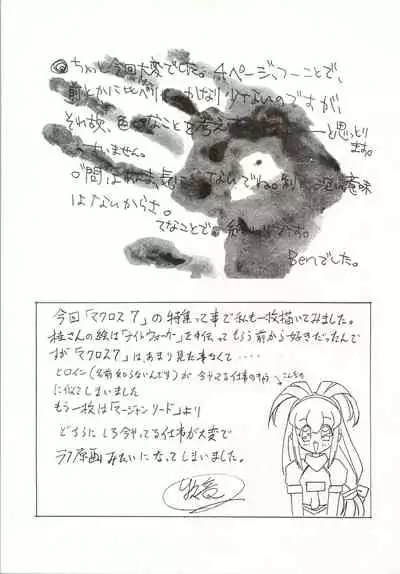 ◎ちょっと今回大変でした。4ページ、つーことで、
前とかに比べりゃかなり少ないのですが、
それ故、色んなことを考え と思っとり
ます。
すいません。
気に ないでね。 意味
はないからさ。
てなことで。 です。
Benでした。
今回「マクロス7」の特集って事で私も一枚描いてみました。
桂さんの絵は「ナイトウォーカー」を手伝ってもらう前から好きだったんで
すが「マクロス7」はあまり見た事なくて‥‥
ヒロイン(名前知らないんです)が 今やってる仕事のキャラ こんなの
に似てしまいました
もう一枚は「マージャンリード」より
どちらにしろ今やってる仕事が大変で
ラフ原画みたいになってしまいました。